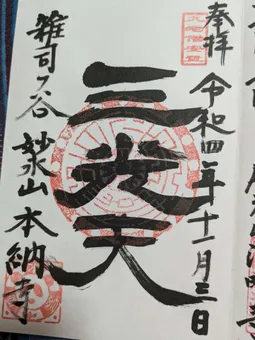 奉拝
令和四年十一月三日
三光天
雑司ヶ谷 妙永山 本納寺